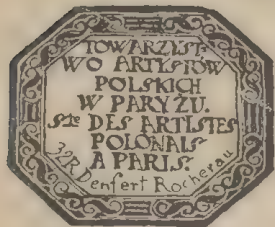 TOWARZYST-
WO ARTYSTÓW
POLSKICH
W PARYŻU.
Sté DES ARTISTES
POLONAIS
A PARIS.
32R.Denfert Rocherau